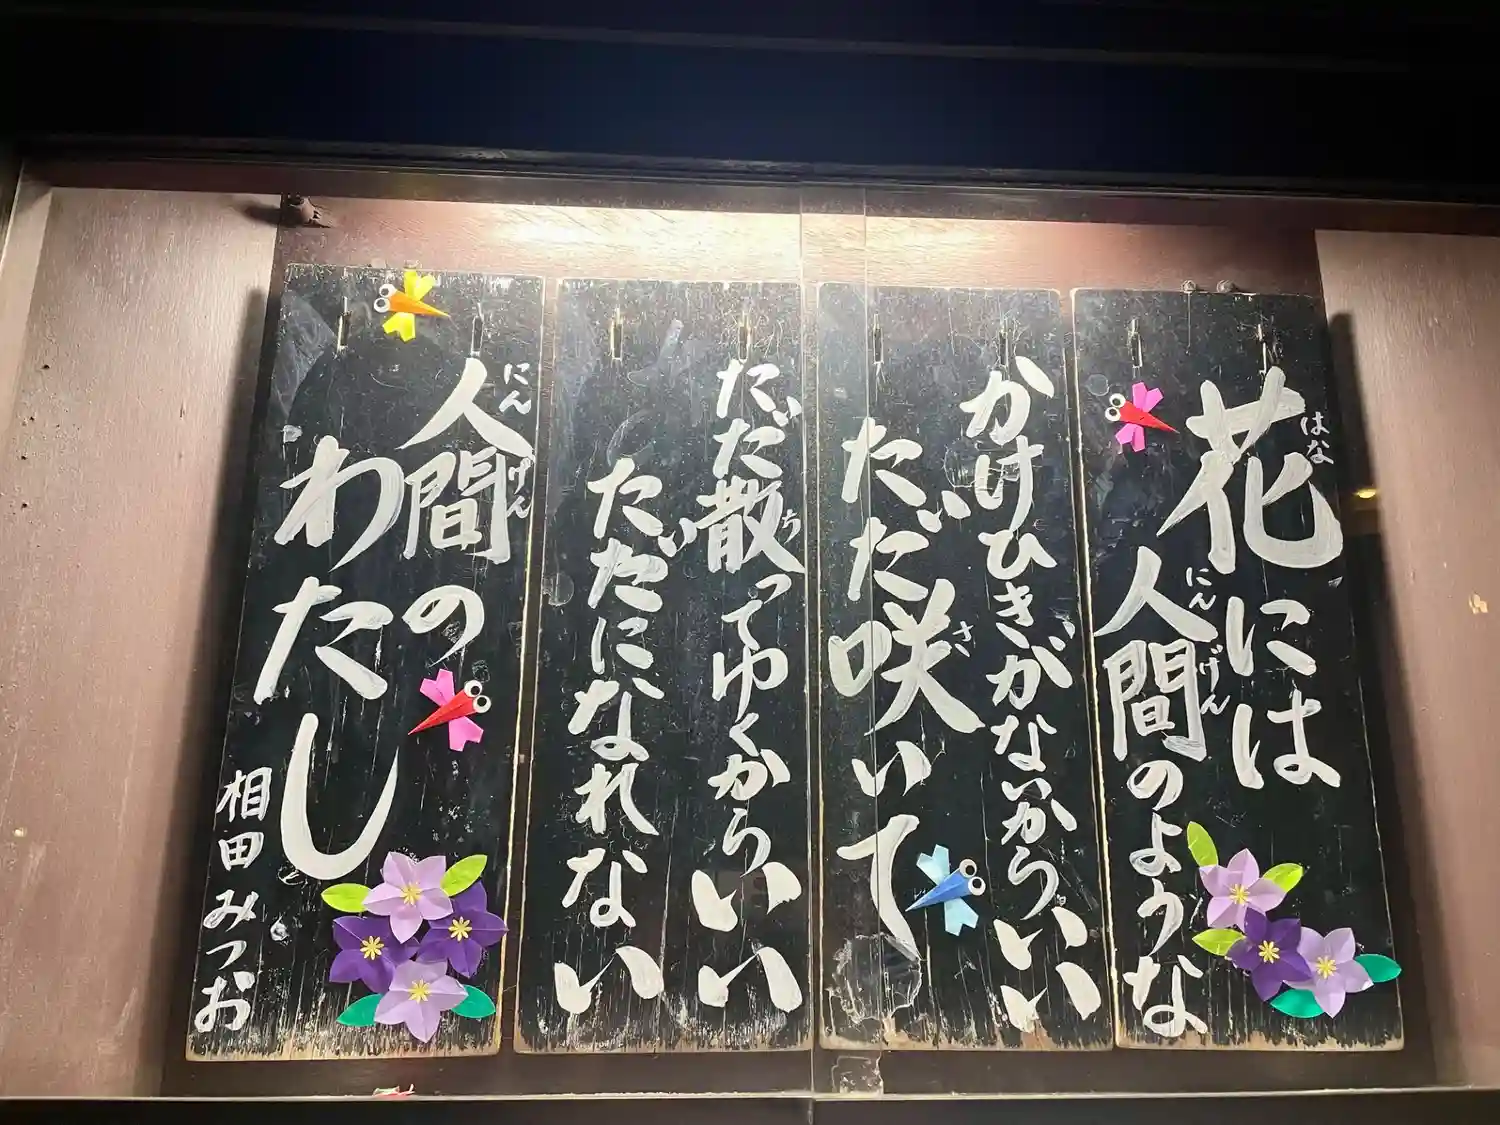 花には
はな
人間のような
にんげん
かけひきがないからいい
ただ咲いて
さ
ただ散ってゆくからいい
ち
ただになれない
人間の
にんげん
わたし
相田みつお